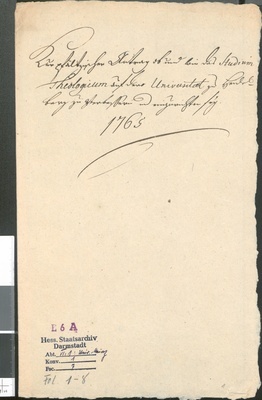 Kurpfältzischer Antrag ob und wie das Studium
Theologicum auf der Universitæt zu Heidel-
berg zu verbessern und einzurichten sey
1765
E 6 A
Hess. Staatsarchiv
Darmstadt
Abt.
Konv. 1
Fsc. 3
Fol. 1-8